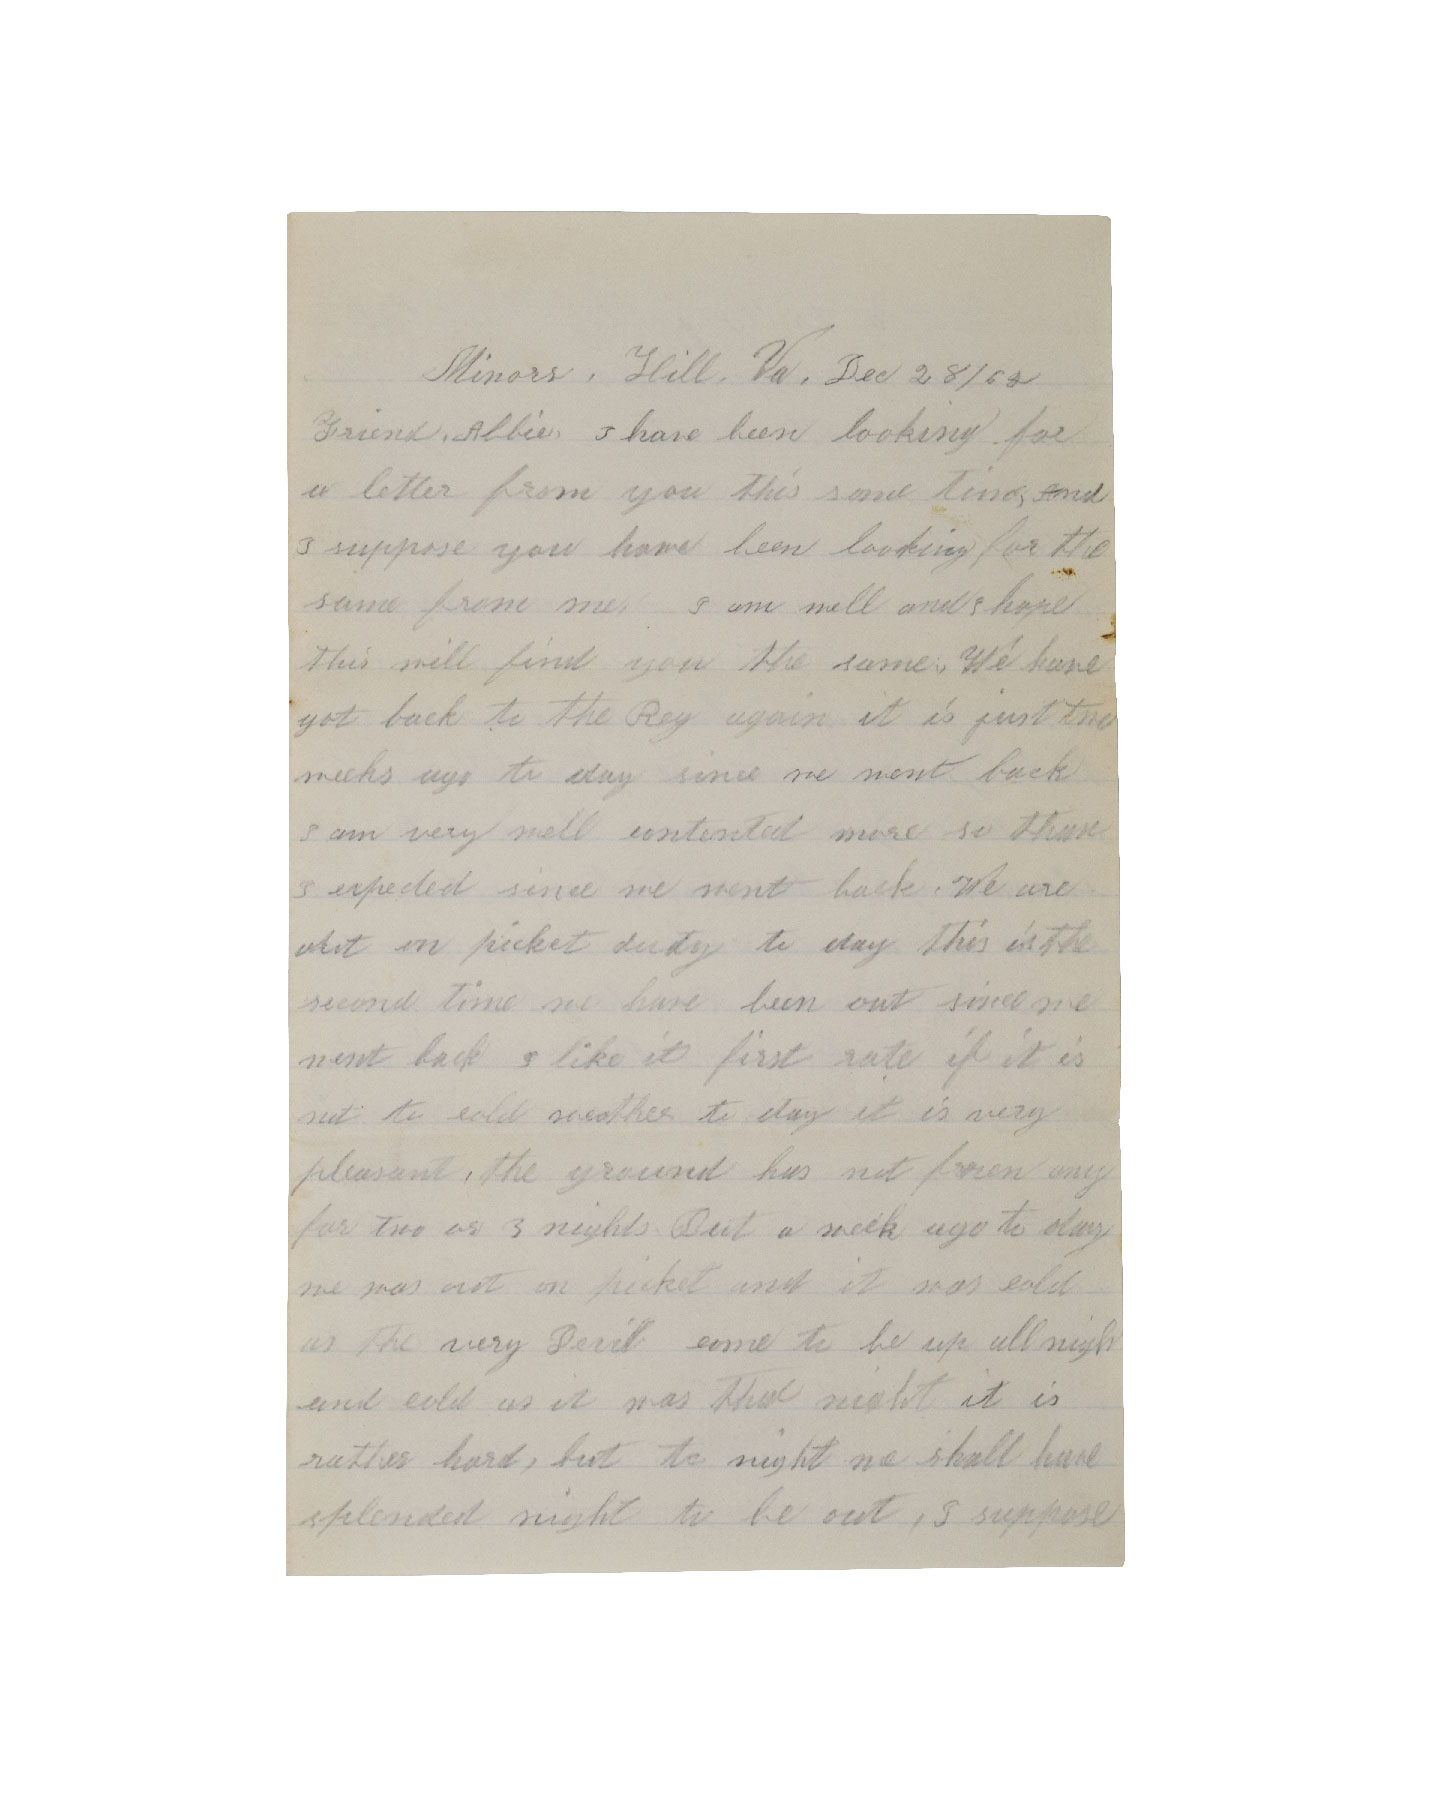 Minors, Hill, Va, Dec 28/62
Friend, Abbie, I have been looking for
a letter from you this some time, and
I suppose you have been looking for the
same from me. I am well and I hope
this will find you the same. We have
got back to the Reg again it is just two
weeks ago to day since we went back
I am very well contented more so than
I expected since we went back. We are
out on picket duty to day this is the
second time we have been out since we
went back I like it first rate if it is
not to cold weather to day it is very
pleasant, the ground has not frozen any
for two or 3 nights But a week ago to day
we was out on picket and it was cold
as the very Devil come to be up all nigh
and cold as it was that night it is
rather hard, but to night we shall have
splended night to be out, I suppose